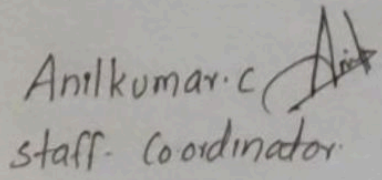 Anilkumar.C
staff- Coordinator.